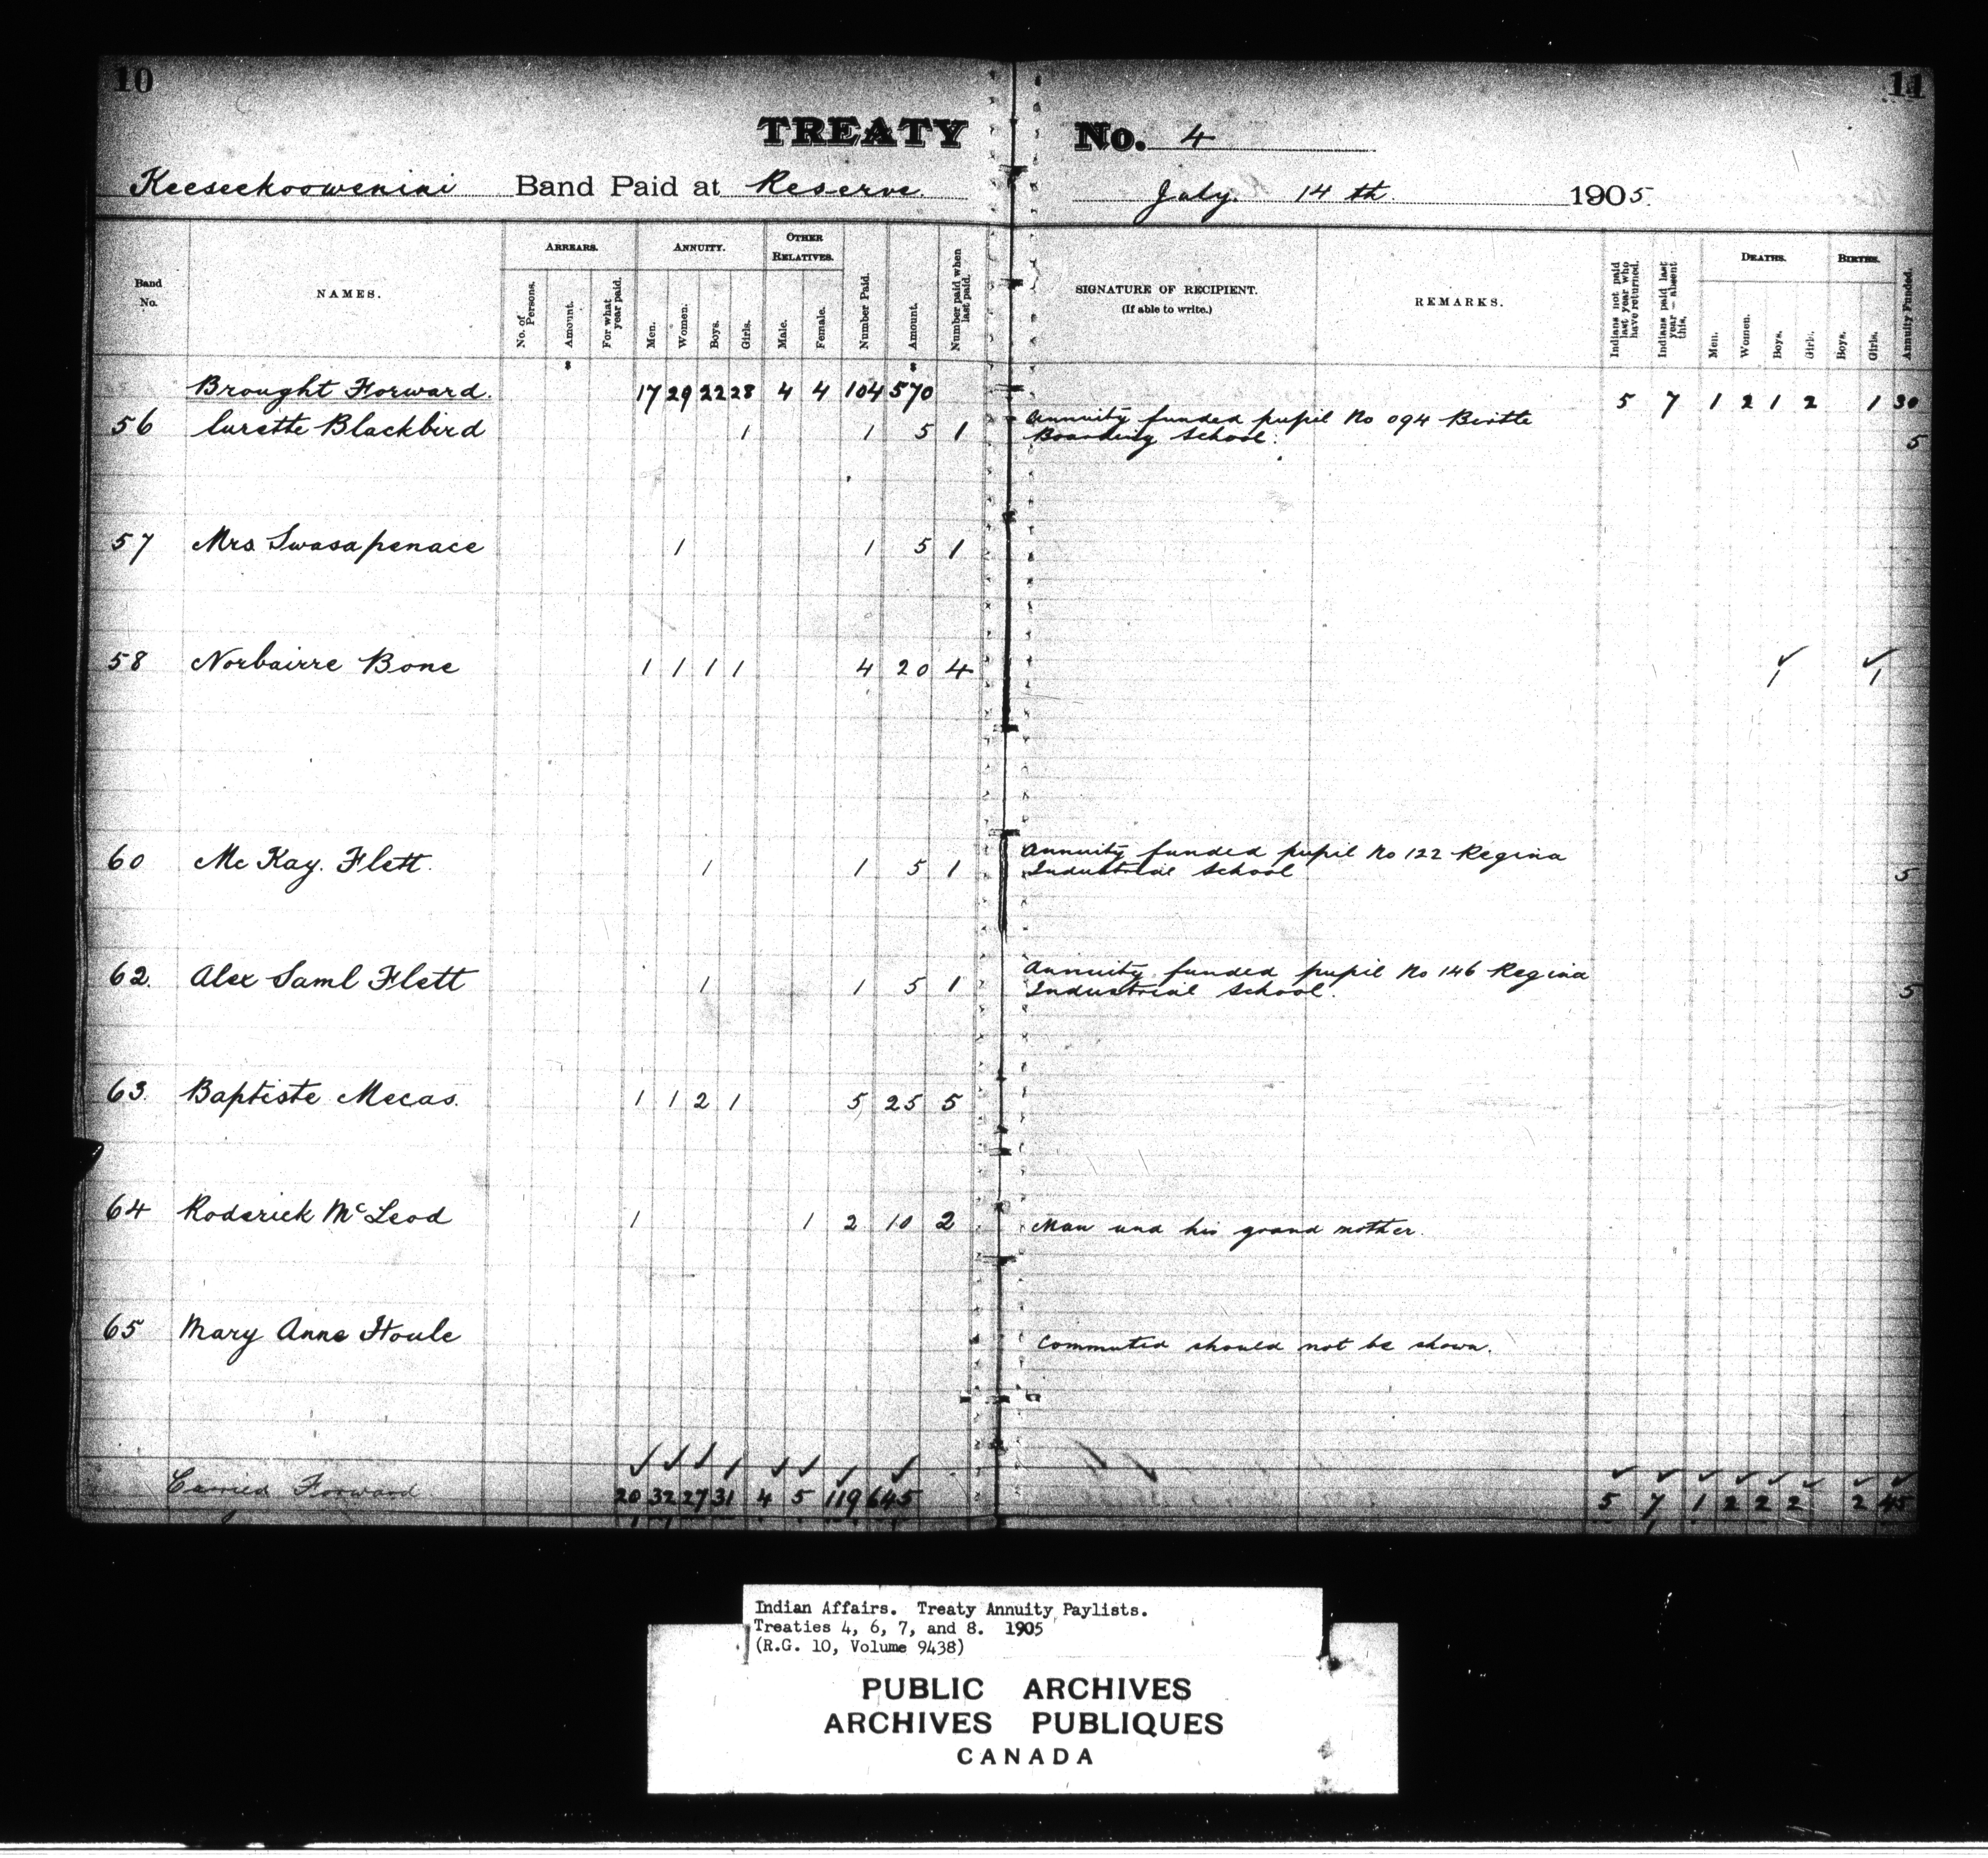 10
11
TREATY No. 4
Keeseekoowenini Band Paid at Reserve. July. 14 th 1905.
Band No.
NAMES.
ARREARS.
No. of Persons.
Amount.
For what year paid.
ANNUITY.
Men.
Women.
Boys.
Girls.
OTHER RELATIVES.
Male.
Female.
Number Paid.
Amount.
Number paid when last paid.
SIGNATURE OF RECIPIENT.
(If able to write.)
REMARKS.
Indians not paid last year who have returned.
Indians paid last year — absent this.
DEATHS.
Men.
Women.
Boys.
Girls.
BIRTHS.
Boys.
Girls.
Annuity Funded.
$ $
Brought Forward. 17 29 22 28 4 4 104 570 5 7 1 2 1 2 1 30
56 Lurette Blackbird 1 1 5 1 Annuity funded pupil No 094 Birtle
Boarding School. 5
57 Mrs Swasapenace 1 1 5 1
58 Norbairre Bone 1 1 1 1 4 20 4 1 1
60 Mc Kay. Flett. 1 1 5 1 Annuity funded pupil No 122 Regina
Industrial School 5
62. Alex Saml Flett 1 1 5 1 Annuity funded pupil No 146 Regina
Industrial School. 5
63. Baptiste Mecas. 1 1 2 1 5 25 5
64 Roderick McLeod 1 1 2 10 2 Man and his grand mother.
65 Mary Anne Houle Commuted should not be shown.
Carried Forward 20 32 27 31 4 5 119 645 5 7 1 2 2 2 2 45
Indian Affairs. Treaty Annuity Paylists.
Treaties 4, 6, 7, and 8. 1905
(R.G. 10, Volume 9438)
PUBLIC ARCHIVES
ARCHIVES PUBLIQUES
CANADA